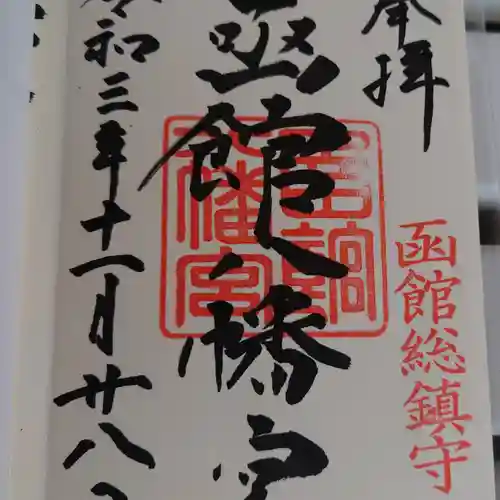 奉拝
函館総鎮守
函館八幡宮
令和三年十一月廿八日